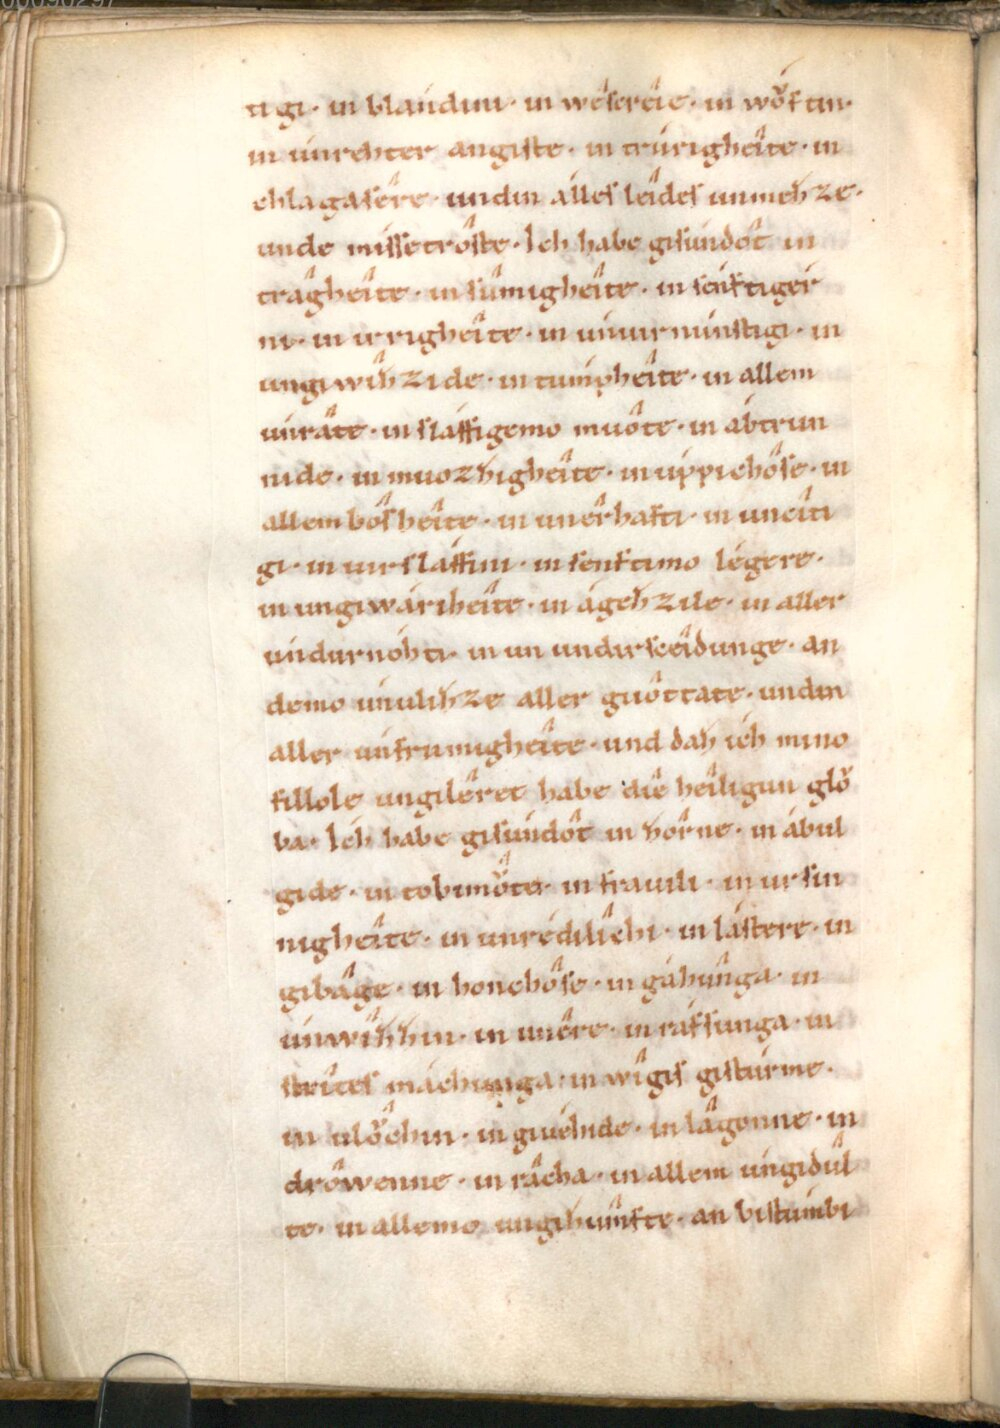 tigi· in blandini· in wéſereíe· in wǒ́ftin·
in únrehter angiſte· in trûrigheîte· in
chlagaſêre· undin álles leîdes unmeh ze·
unde míſſetrôſte· Ich habe giſúndôt in
trâgheîte· in ſûmigheîte· in ſcúftiger
ni· in irrigheîte· in únvirnúnſtigi· in
ungiwîhzide· in túmpheîte· in allem
únrâte· in ſláffigemo muôte· in ábtrun
nide· in muozhigheîte· in úppichôſe· in
allem bôſheîte· in unêrhafti· in uneíti
gi· in virſláffini· in ſenftimo légere·
in ungiwáriheîte· in ágehzile· in aller
úndurnóhti· in un undirſceîdunge· an
demo únulîhze aller guôttate· undin
aller únfrumigheîte· und dah ich mino
fillole ungilêret habe diê heîligun glǒ
ba· Ich habe giſúndôt in hôrne· in ábul
gide· in tobimǒ̂te· in fravili· in urſin
nigheîte· in unrédilîchi· in láſtere· in
gibâge· in honchôſe· in gâhúnga· in
únwîhhin· in unêre· in ráfſunga· in
ſtrîtes máchunga· in wîgis giſtúrme·
in ulǒ̂chin· in giuéhide· in lâgonne· in
drôwenne· in râcha· in allem úngidúl
te· in allemo ungihúmfte· an biſtúmbi